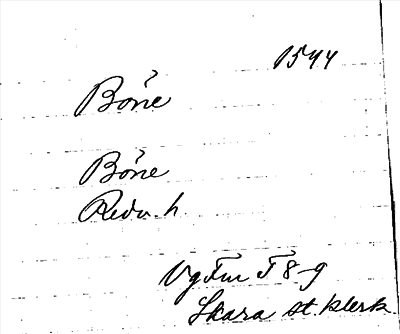 1544
Böne
Böne
Redv. h.
Vg Fur F 8-9
Skara st. klerk